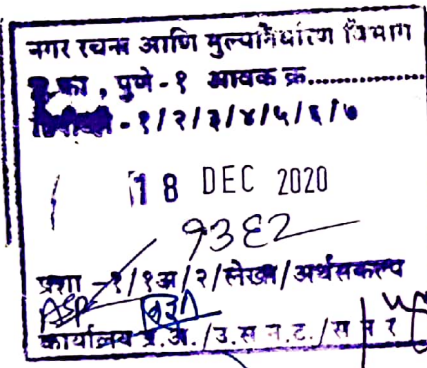 नगर रचना आणि मुल्यनिर्धारण विभाग
पुणे-१ आवक क्र..............
-१/२/३/४/५/६/७
18 DEC 2020
१३६२
प्रशा -१/१अ/२/लेखा/अर्थसंकल्प
कार्यालय